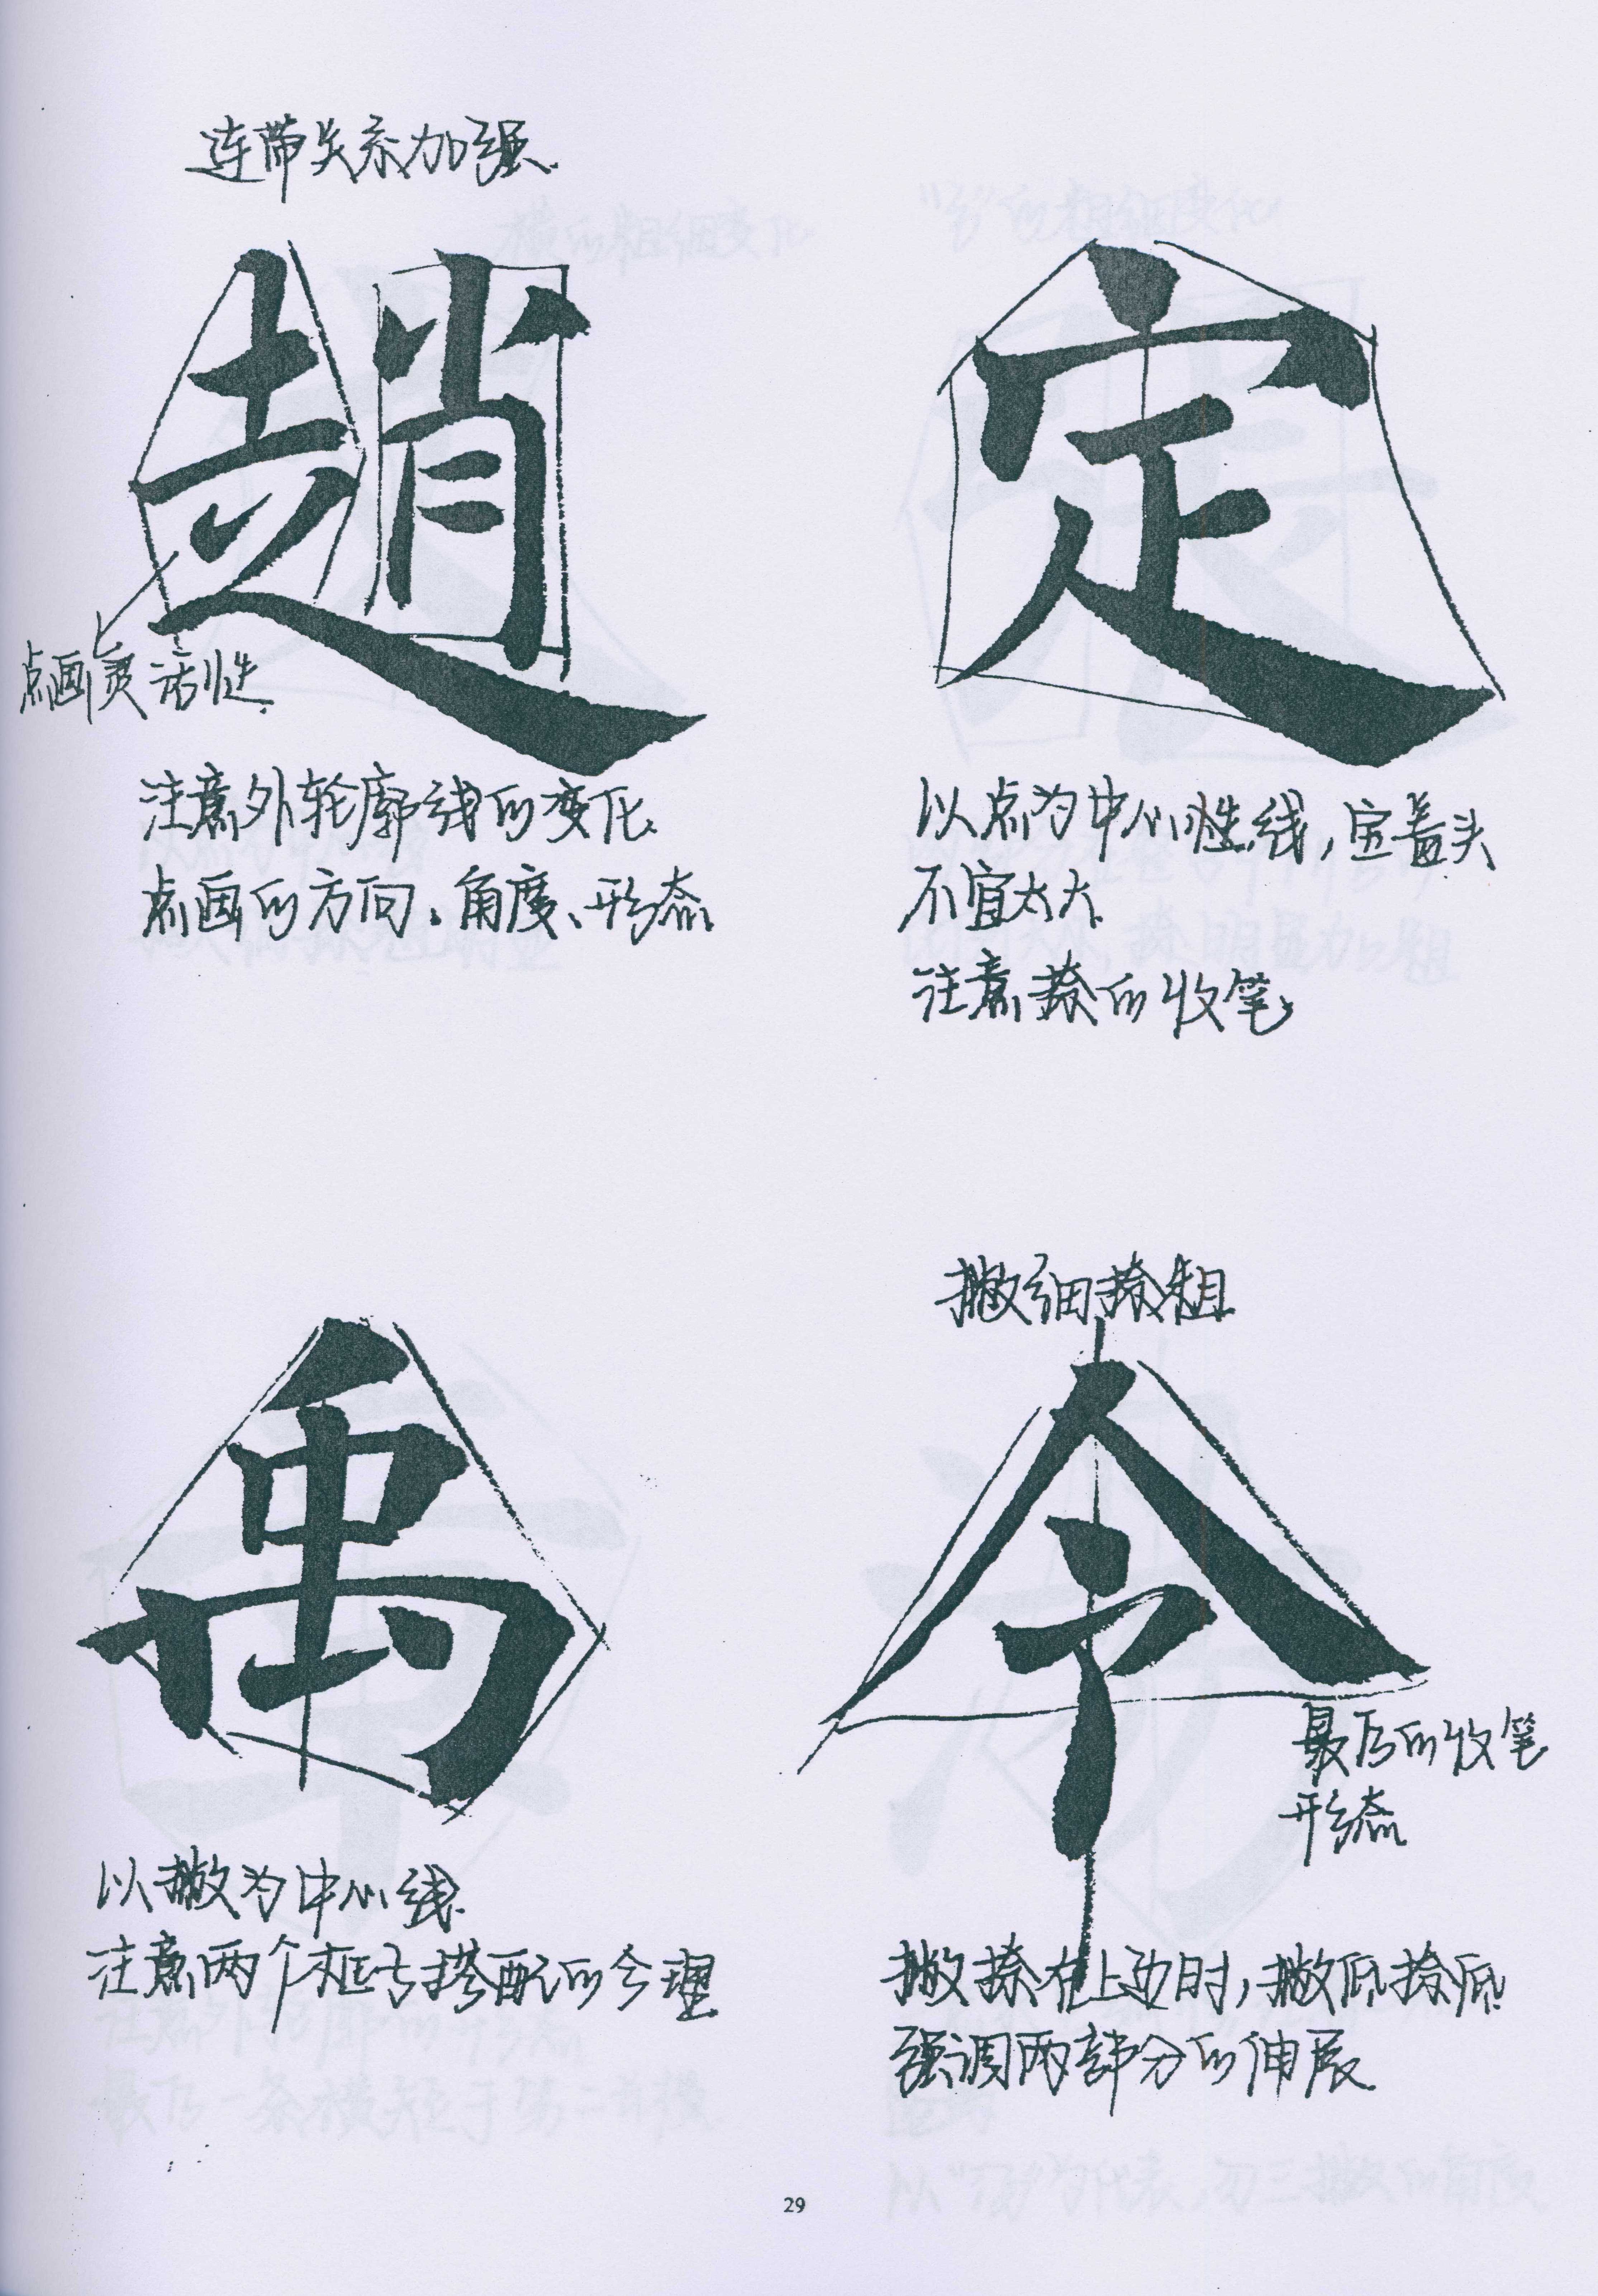 连带关系加强.
趙
点画灵活性.
注意外轮廓线的变化.
点画的方向、角度、形态.
定
以点为中心性线,宝盖头
不宜太大.
注意捺的收笔.
禹
以撇为中心线.
注意两个框与搭配的合理.
撇细捺粗.
令
最后的收笔
形态
撇捺在上边时,撇低捺低.
强调两部分的伸展.
29